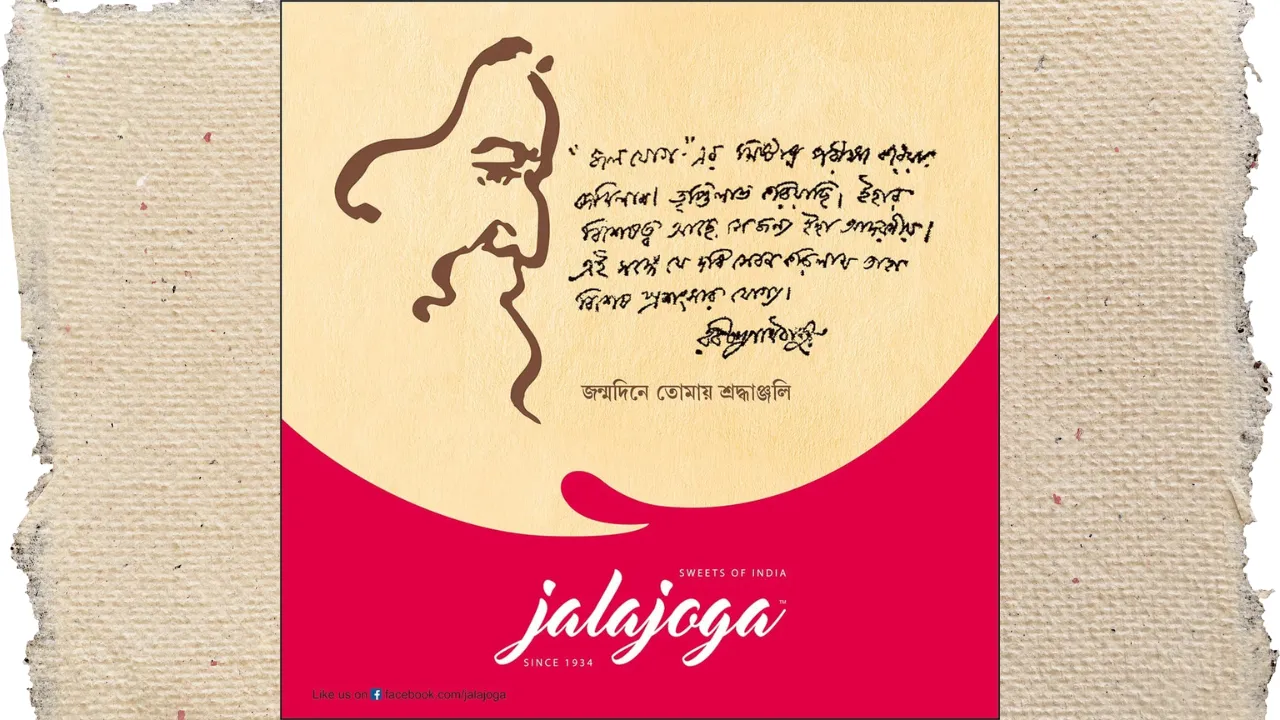 "জলযোগ" এর মিষ্টান্ন পরীক্ষা করিয়া
দেখিলাম। তৃপ্তিলাভ করিয়াছি। ইহার
বিশেষত্ব আছে সেজন্য ইহা আদরণীয়।
এই সঙ্গে যে দধি সেবন করিলাম তাহা
বিশেষ প্রশংসার যোগ্য।
রবীন্দ্রনাথ ঠাকুর
জন্মদিনে তোমায় শ্রদ্ধাঞ্জলি
SWEETS OF INDIA
jalajoga™
SINCE 1934
Like us on facebook.com/jalajoga